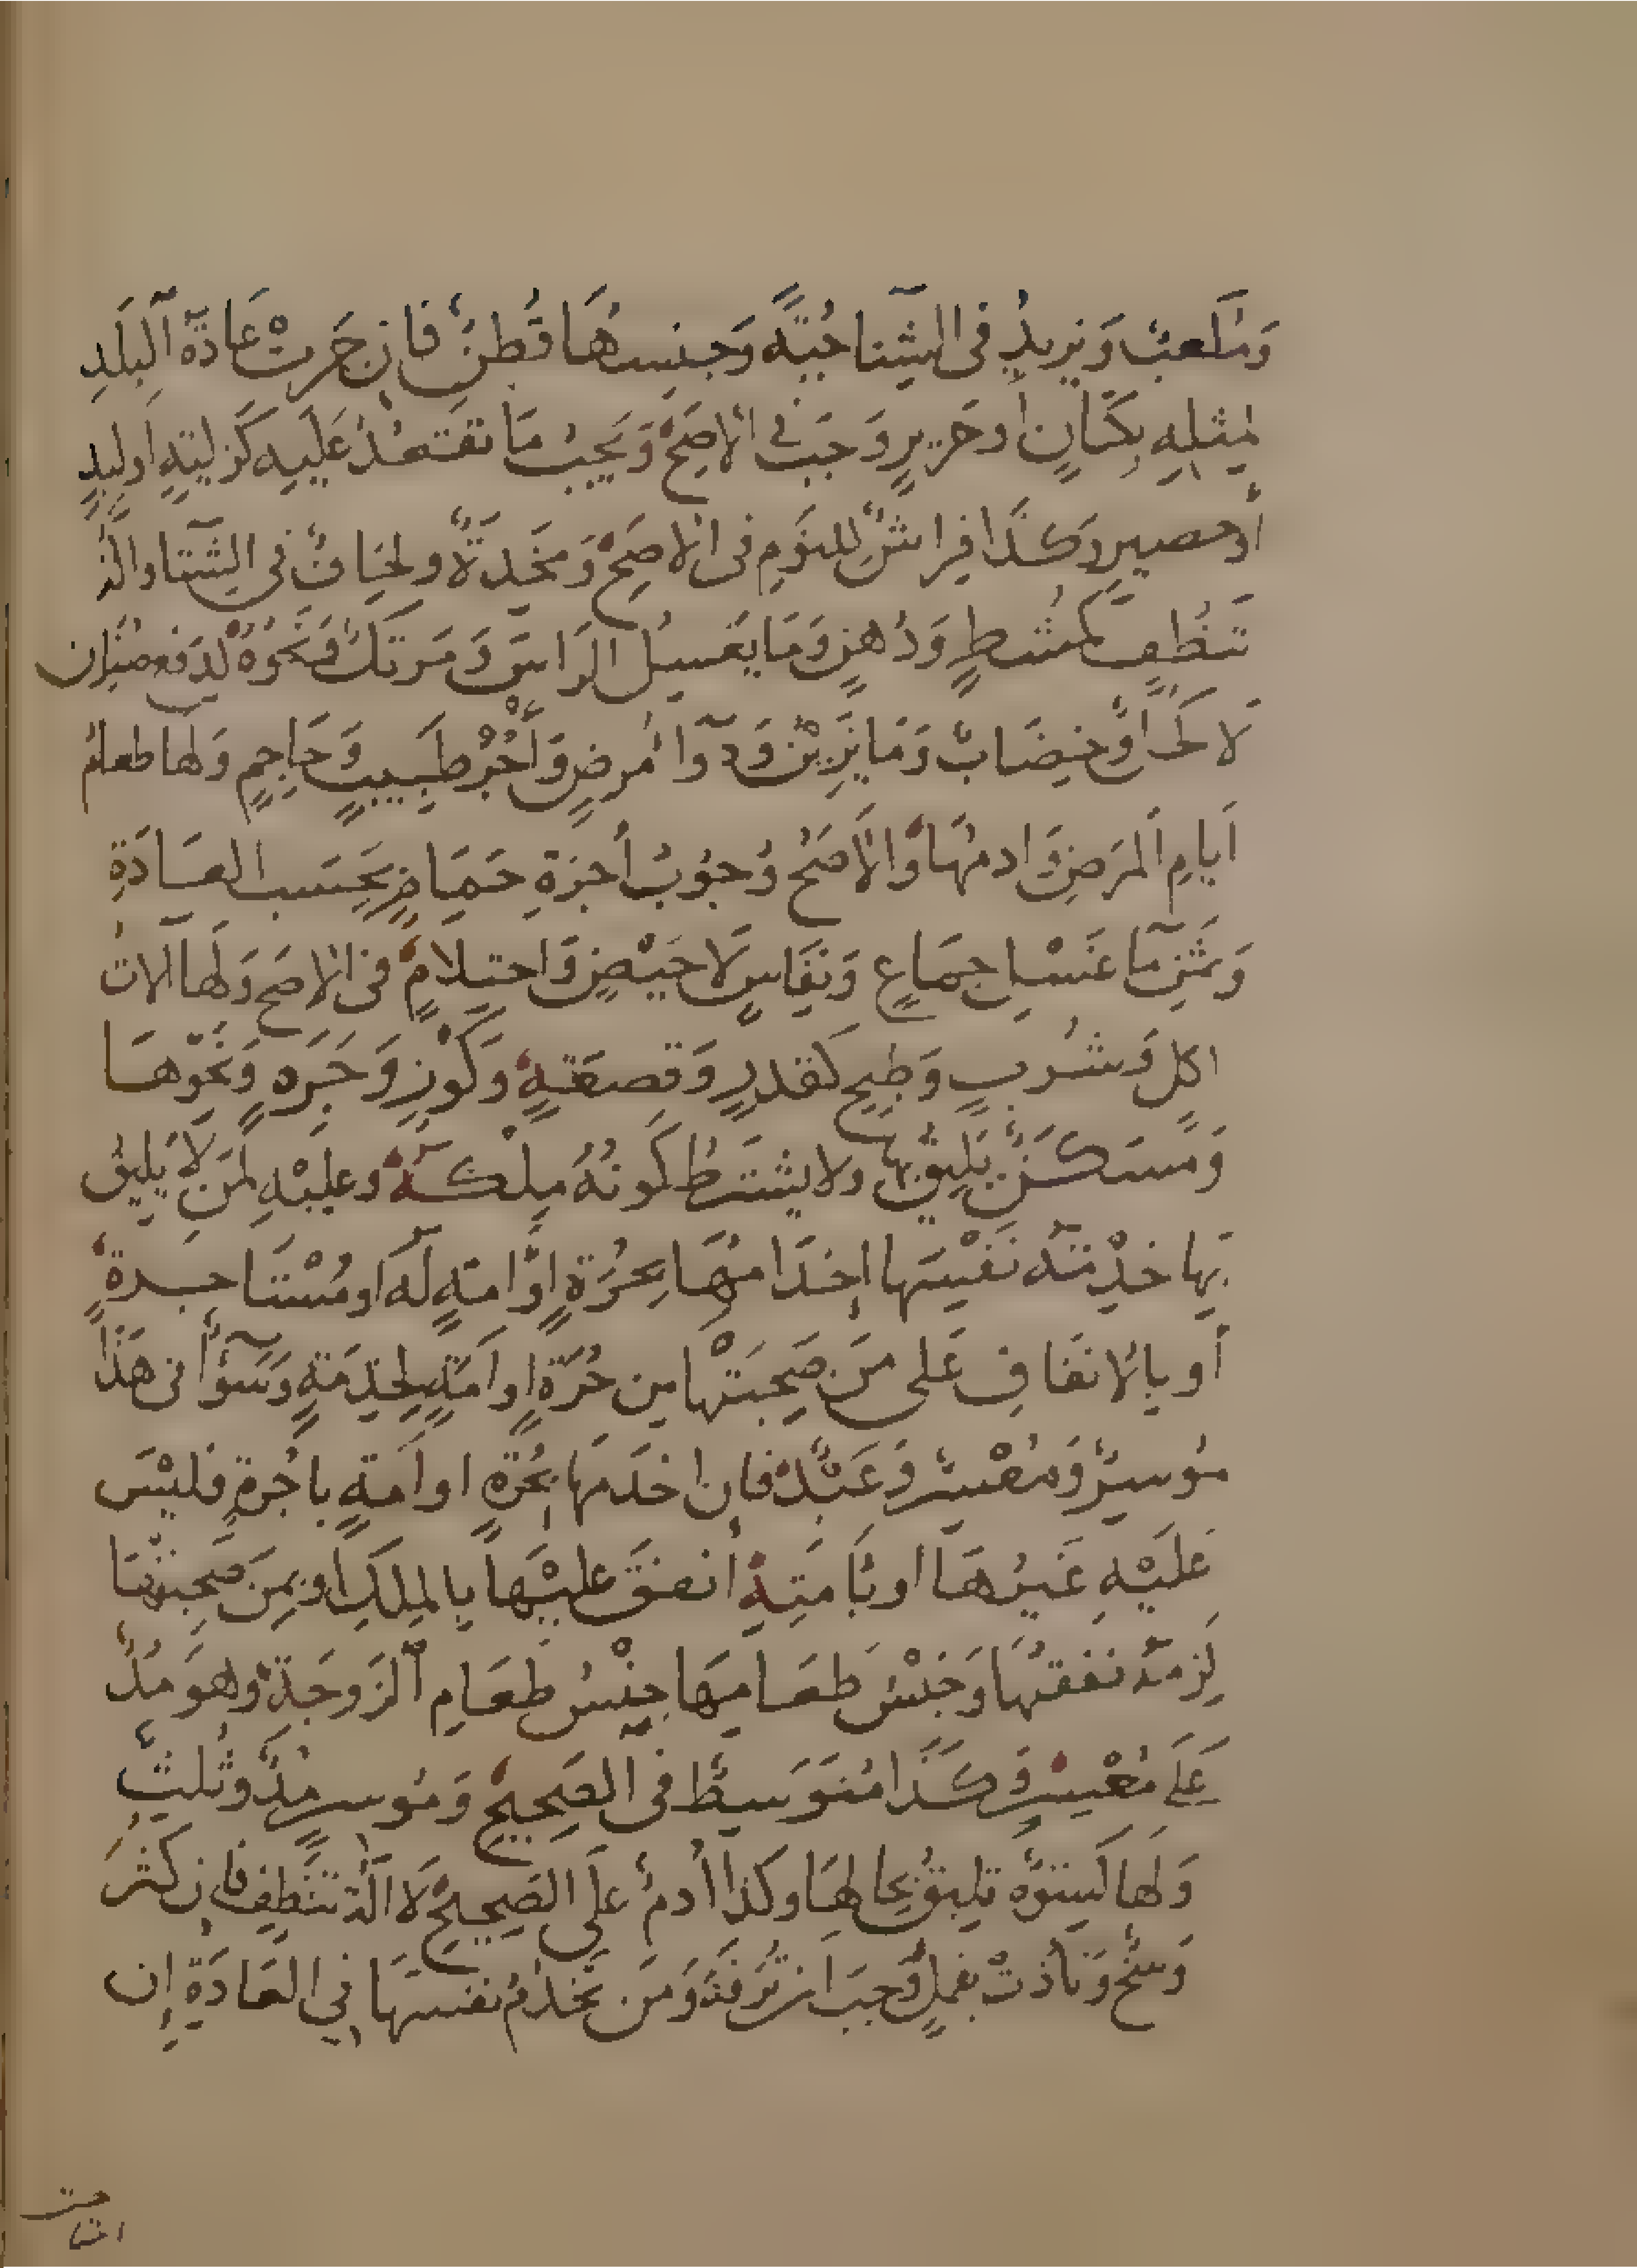 وَمُكَعَّبٌ وَيَزِيدُ فى الشِّتَا جُبَّةً وَجِنسُهَا قُطنٌ فان جَرَت عَادَةُ البَلَدِ
لمِثلِهِ بِكَتَّانٍ أَو حَرِيرٍ وَجَبَ فى الاصَحِّ وَيَجِبُ مَا تقعُدُ عَلَيهِ كَزِليَّةٍ اَو لِبدٍ
أو حصيرٍ وَكَذَا فِرَاشٌ لِلنَّومِ فى الاصَحِّ وَمِخَدَّةٌ ولِحَافٌ فى الشِّتَا والة
تَنظُّفٍ كَمُشطٍ وَدُهنٍ وَمَا يَغسِلُ الرَّاسَ وَمَرتَكٌ وَنَحوُهُ لدفع صنان
لَا كُحلٌ وَخِضَابٌ وَمَا يُزَيِّنُ وَدَوَآ مَرضٍ وَأُجْرُ طَبِيبٍ وَحَاجِمٍ وَلَهَا طعامُ
اَيامِ المَرَضِ وَادمُهَا وَالأصَحُّ وُجُوبُ أُجرَةِ حَمَّامٍ بِحَسَبِ العَادَةِ
وَثَمَنِ مَآ غَسْلِ جِمَاعٍ وَنِفَاسٍ لَا حَيْضٍ وَاحتِلَامٍ فى الاصَحِّ وَلَهَا آلاتُ
اكلٍ وَشُربٍ وَطبخٍ كَقدرٍ وَقصعَةٍ وَكُوزٍ وَجَرَّه وَنَحْوِهَا
وَمَسكَنٌ يَلِيقُ بهَا ولا يشتَرطُ كَونُهُ مِلْكَهُ وعليْهِ لِمَن لَا يَلِيقُ
بِهَا خِدْمَةُ نَفْسِهَا اِخدَامُهَا بِحُرَّةٍ اَو امَةٍ لَهُ او مُسْتَاجَرةٍ
أَو بِالاِنفَاقِ عَلى مَن صَحِبَتْهَا مِن حُرَّةٍ او اَمَةٍ لِخِدمَةٍ وَسَوآٌ فى هَذَا
مُوسِرٌ وَمُعْسِرٌ وَعَبْدٌ فان اخدَمهَا بحُرَّةٍ او امَةٍ باُجْرةٍ فليْسَ
عَلَيْهِ غَيرُهَا او بِأَمَتِهِ أنفقَ عليْهَا بالملِكِ او بِمَن صَحِبَتْهَا
لَزِمَهُ نفقتُهَا وَجِنْسُ طَعَامِهَا جِنْسُ طَعَامِ الزَّوجَةِ وهوَ مُدٌّ
عَلَى مُعْسِرٍ وَكَذَا مُتَوَسِّطٌ فى الصَحِيحِ وَمُوسرٍ مُدٌّ وثُلثٌ
وَلَهَا كِسْوَةٌ تلِيقُ بحَالهَا وكذا أُدمٌ عَلَى الصَحِيحِ لَا آلَةُ تنظّفٍ فان كثُرَ
وَسَخٌ وَتَأذّتْ بقملٍ وَجَبَ ان تُرَفَّهَ وَمَن تَخدُمُ نفسَهَا فِي العَادَةِ اِن
احتا
جت